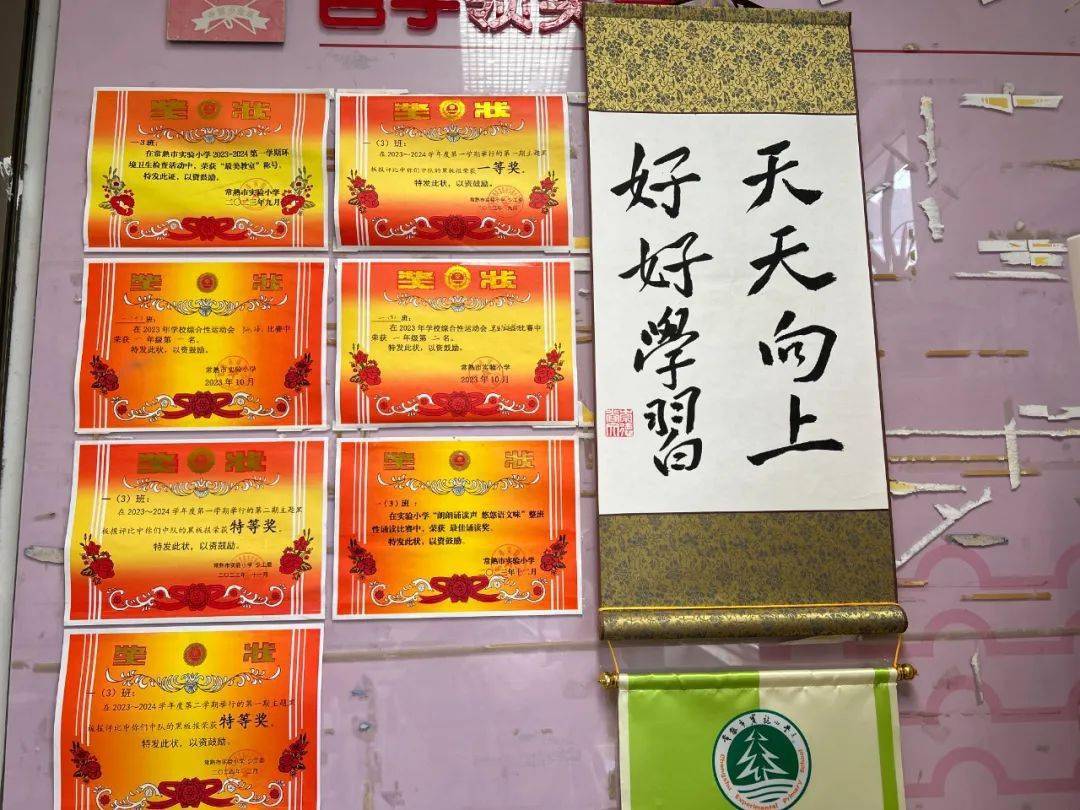 奖状
一3班：
在常熟市实验小学2023-2024第一学期环
境卫生检查活动中，荣获“最美教室”称号。
特发此证，以资鼓励。
常熟市实验小学
二〇二三年九月
奖状
一（3）班：
在2023～2024学年度第一学期举行的第一期主题黑
板报评比中你们中队的黑板报荣获一等奖。
特发此状，以资鼓励。
常熟市实验小学 少工委
二〇二三年九月
奖状
一（3）班：
在2023年学校综合性运动会 比赛中
荣获 一 年级第 一 名。
特发此状，以资鼓励。
常熟市实验小学
2023年10月
奖状
一（3）班：
在2023年学校综合性运动会 比赛中
荣获 一 年级第 二 名。
特发此状，以资鼓励。
常熟市实验小学
2023年10月
奖状
一（3）班：
在2023～2024学年度第一学期举行的第二期主题黑
板报评比中你们中队的黑板报荣获特等奖。
特发此状，以资鼓励。
常熟市实验小学 少工委
二〇二三年 十一月
奖状
一（3）班：
在实验小学“朗朗诵读声 悠悠语文味”整班
性诵读比赛中，荣获 最佳诵读奖。
特发此状，以资鼓励。
常熟市实验小学
二〇二三年十二月
奖状
一（3）班：
在2023～2024学年度第二学期举行的第一期主题黑
板报评比中你们中队的黑板报荣获特等奖。
特发此状，以资鼓励。
常熟市实验小学 少工委
二〇二四年 月
好好學習
天天向上
常熟市实验小学
Changshu Experimental Primary